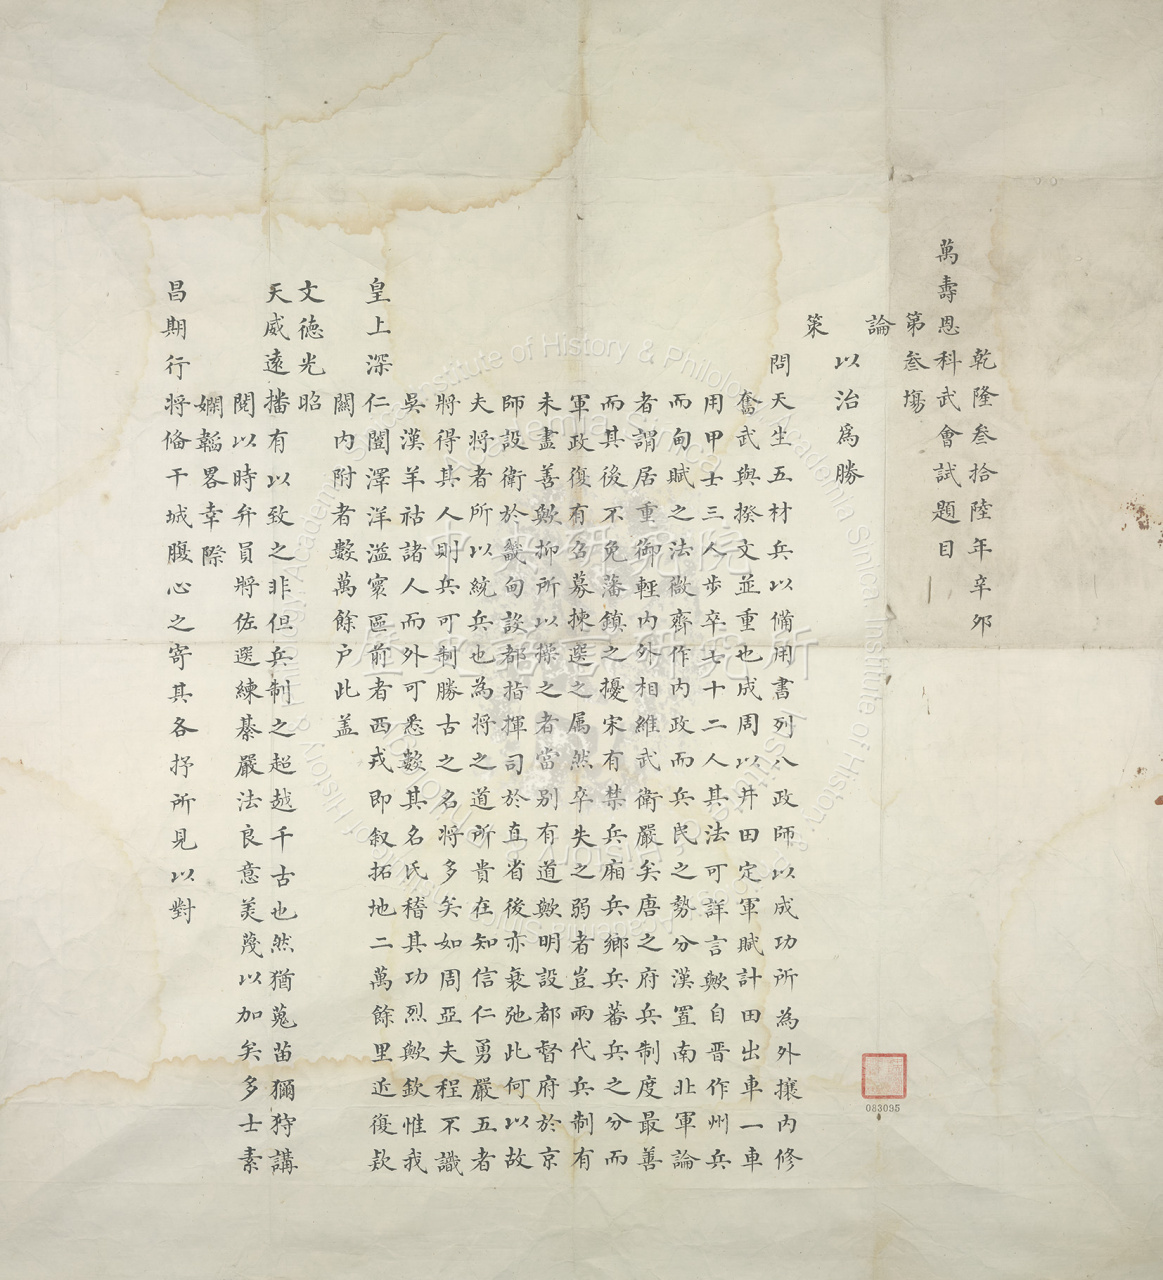 乾隆叁拾陸年辛卯
萬壽恩科武會試題目
第叁塲
論
以治爲勝
策
問天生五材兵以備用書列八政師以成功所為外攘內修
奮武與揆文並重也成周以井田定軍賦計田出車一車
用甲士三人步卒七十二人其法可詳言歟自晋作州兵
而甸賦之法微齊作內政而兵民之勢分漢置南北軍論
者謂居重御輕內外相維武衛嚴矣唐之府兵制度最善
而其後不免藩鎮之擾宋有禁兵廂兵鄉兵蕃兵之分而
軍政復有召募揀選之属然卒失之弱者豈兩代兵制有
未盡善歟抑所以操之者當别有道歟明設都督府於京
師設衛於畿甸設都指揮司於直省後亦衰弛此何以故
夫將者所以統兵也為將之道所貴在知信仁勇嚴五者
將得其人則兵可制勝古之名將多矣如周亞夫程不識
吳漢羊祜諸人而外可悉數其名氏稽其功烈歟欽惟我
皇上深仁闓澤洋溢寰區前者西戎即叙拓地二萬餘里近復欵
關內附者數萬餘户此盖
文德光昭
天威遠播有以致之非但兵制之超越千古也然猶蒐苗獮狩講
閱以時弁員將佐選練綦嚴法良意美蔑以加矣多士素
嫻韜畧幸際
昌期行將俻干城腹心之寄其各抒所見以對
083095
中央研究院
歷史語言研究所
Institute of History & Philology, Academia Sinica